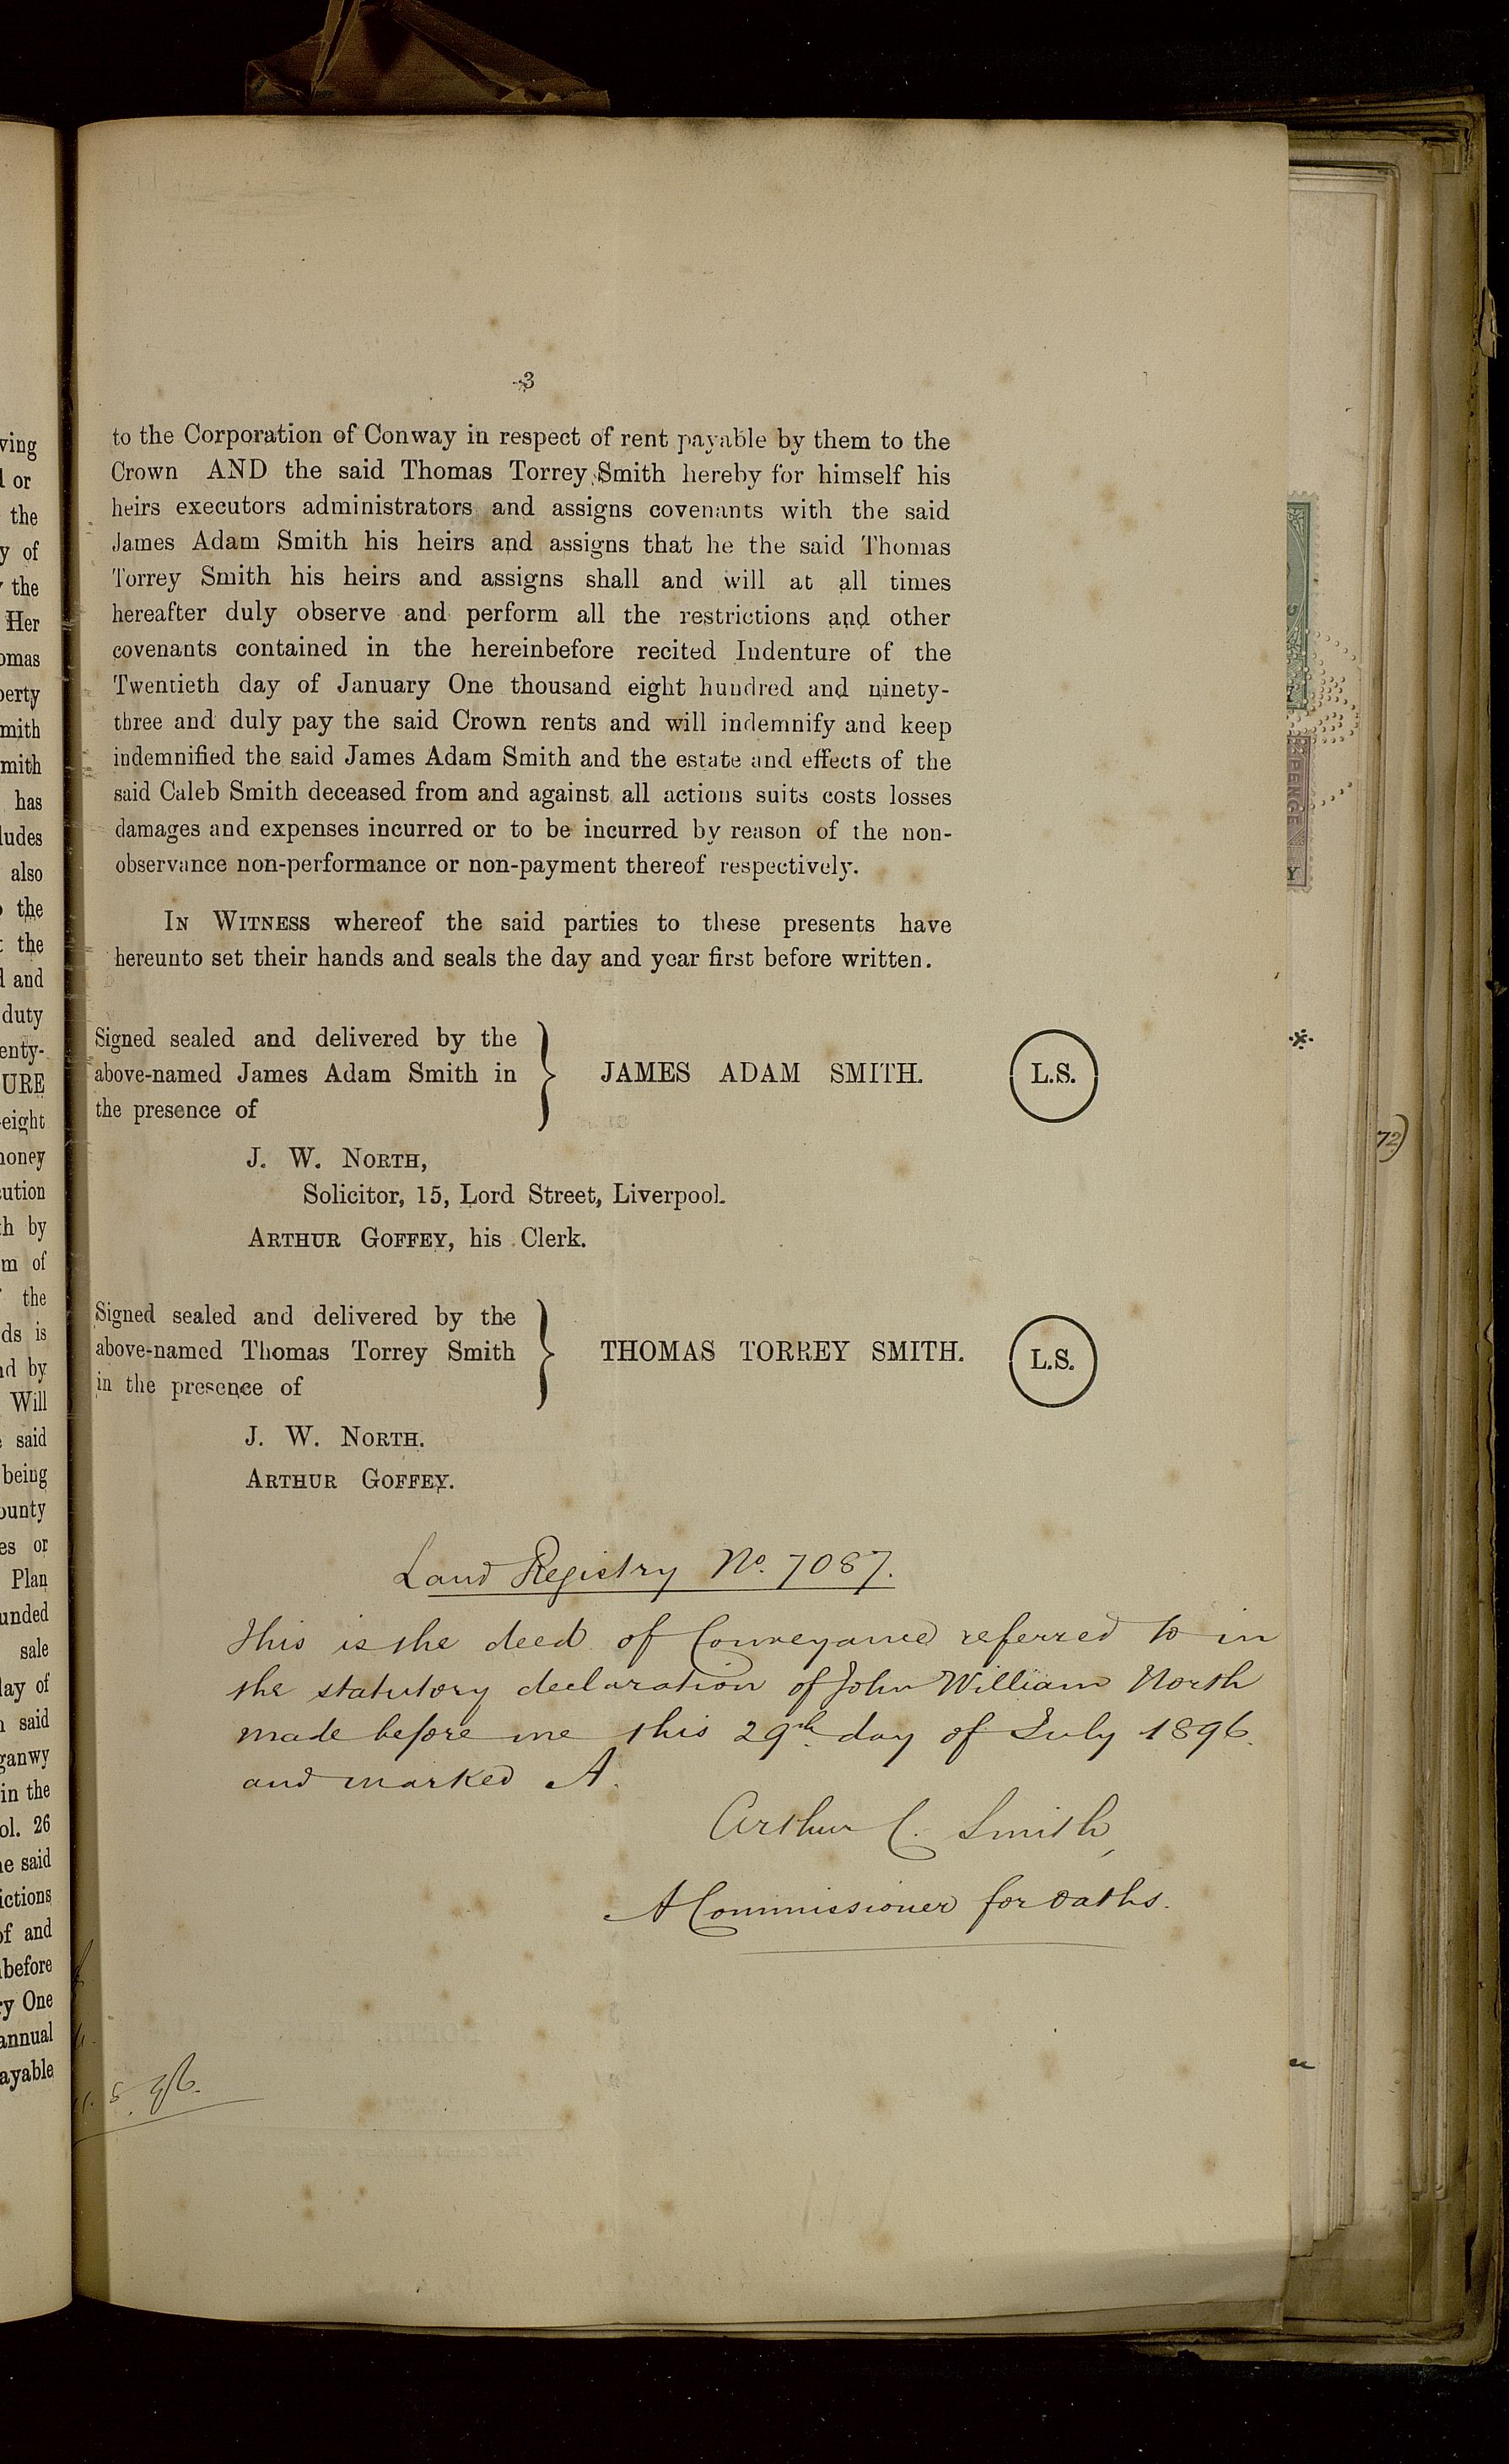 3
to the Corporation of Conway in respect of rent payable by them to the
Crown AND the said Thomas Torrey Smith hereby for himself his
heirs executors administrators and assigns covenants with the said
James Adam Smith his heirs and assigns that he the said Thomas
Torrey Smith his heirs and assigns shall and will at all times
hereafter duly observe and perform all the restrictions and other
covenants contained in the hereinbefore recited Indenture of the
Twentieth day of January One thousand eight hundred and ninety-
three and duly pay the said Crown rents and will indemnify and keep
indemnified the said James Adam Smith and the estate and effects of the
said Caleb Smith deceased from and against all actions suits costs losses
damages and expenses incurred or to be incurred by reason of the non-
observance non-performance or non-payment thereof respectively.
IN WITNESS whereof the said parties to these presents have
hereunto set their hands and seals the day and year first before written.
Signed sealed and delivered by the
above-named James Adam Smith in
the presence of
JAMES ADAM SMITH.
L.S.
J. W. NORTH,
Solicitor, 15, Lord Street, Liverpool.
ARTHUR GOFFEY, his Clerk.
Signed sealed and delivered by the
above-named Thomas Torrey Smith
in the presence of
THOMAS TORREY SMITH.
L.S.
J. W. NORTH.
ARTHUR GOFFEY.
Land Registry No. 7087.
This is the deed of Conveyance referred to in
the statutory declaration of John William North
made before me this 29th day of July 1896.
and marked A.
Arthur C. Smith,
A Commissioner for Oaths.
ving
or
the
of
the
Her
omas
perty
mith
mith
has
ludes
also
the
the
and
duty
enty-
URE
eight
money
ution
by
of
the
is
by
Will
said
being
ounty
or
Plan
unded
sale
of
said
ganwy
in the
ol. 26
said
ictions
of and
before
One
annual
ayable
72)
PENCE